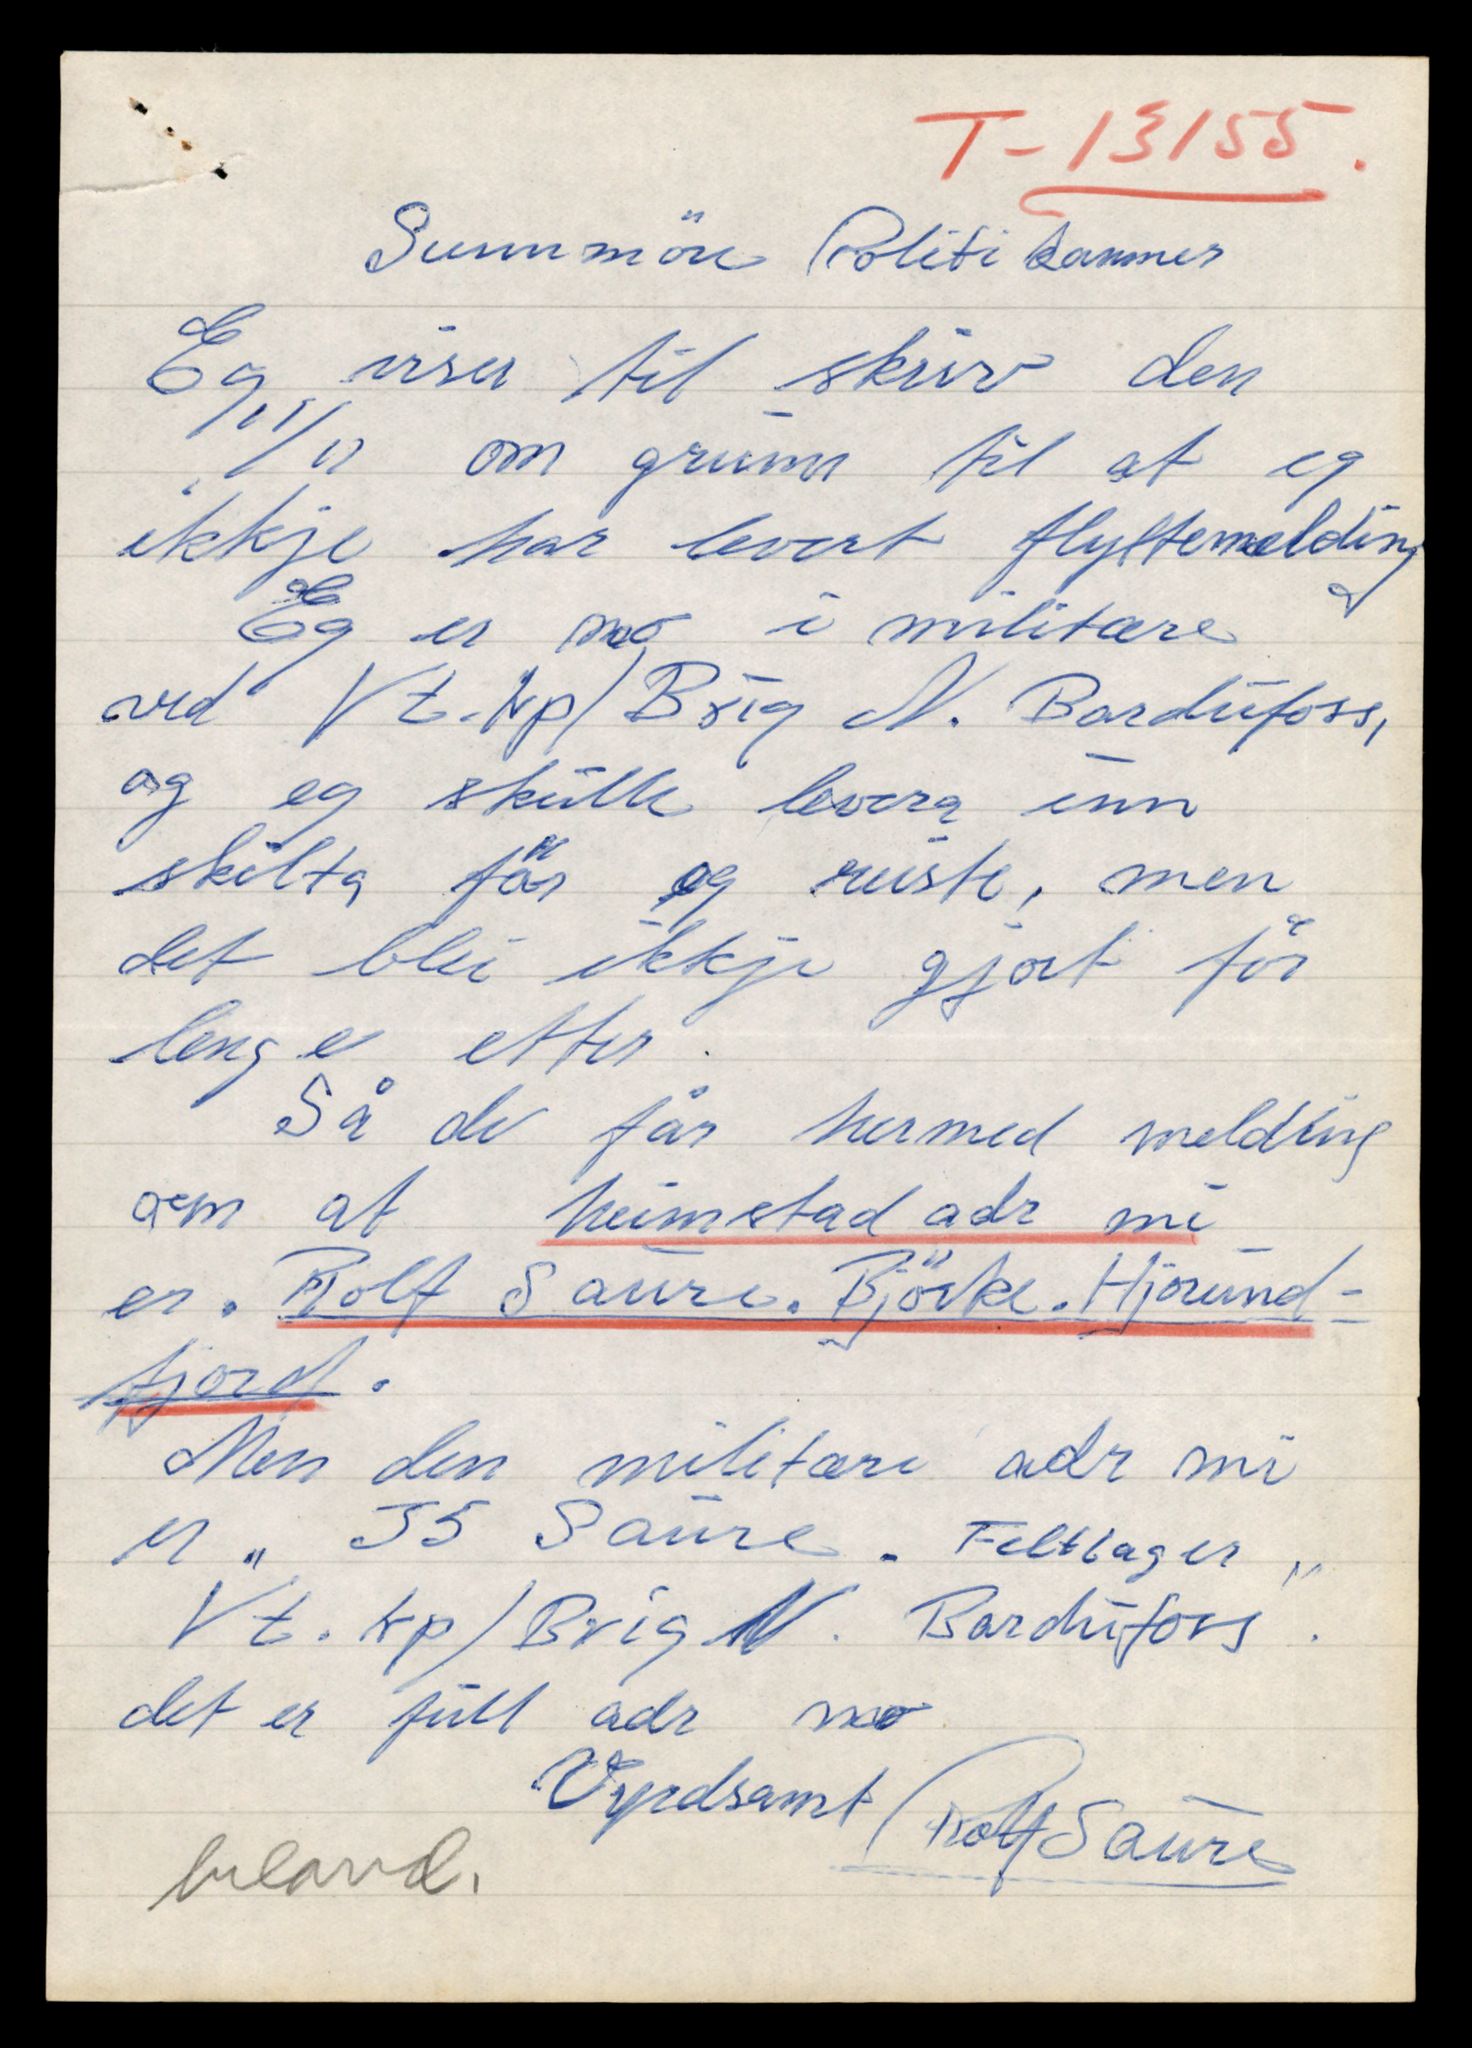 T-13155.
Sunnmöre Politikammer
Eg viser til skriv den
11/11 om grunn til at eg
ikkje har levert flyttemelding
Eg er no i militære
ved Vt.kp/Brig N. Bardufoss,
og eg skulle levera inn
skilta för eg reiste, men
det blei ikkje gjort för
lenge etter.
Så de får hermed melding
om at heimstad adr mi
er. Rolf Saure. Bjørke. Hjørund-
fjord.
Men den militære adr mi
er „ 35 Saure. Feltlager „
Vt.kp/Brig N. Bardufoss.
det er full adr no
Vyrdsamt Rolf Saure